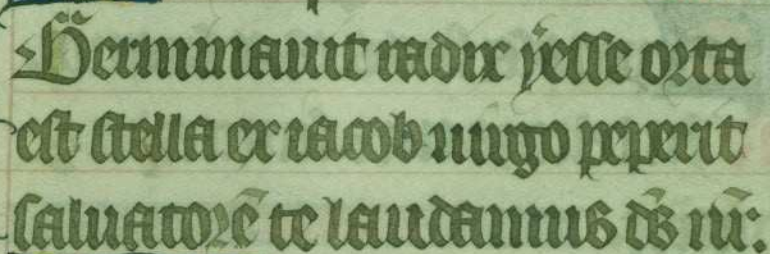 Germinauit radix yesse orta
est stella ex iacob uirgo peperit
saluatorē te laudamus ds̄ nr̄: